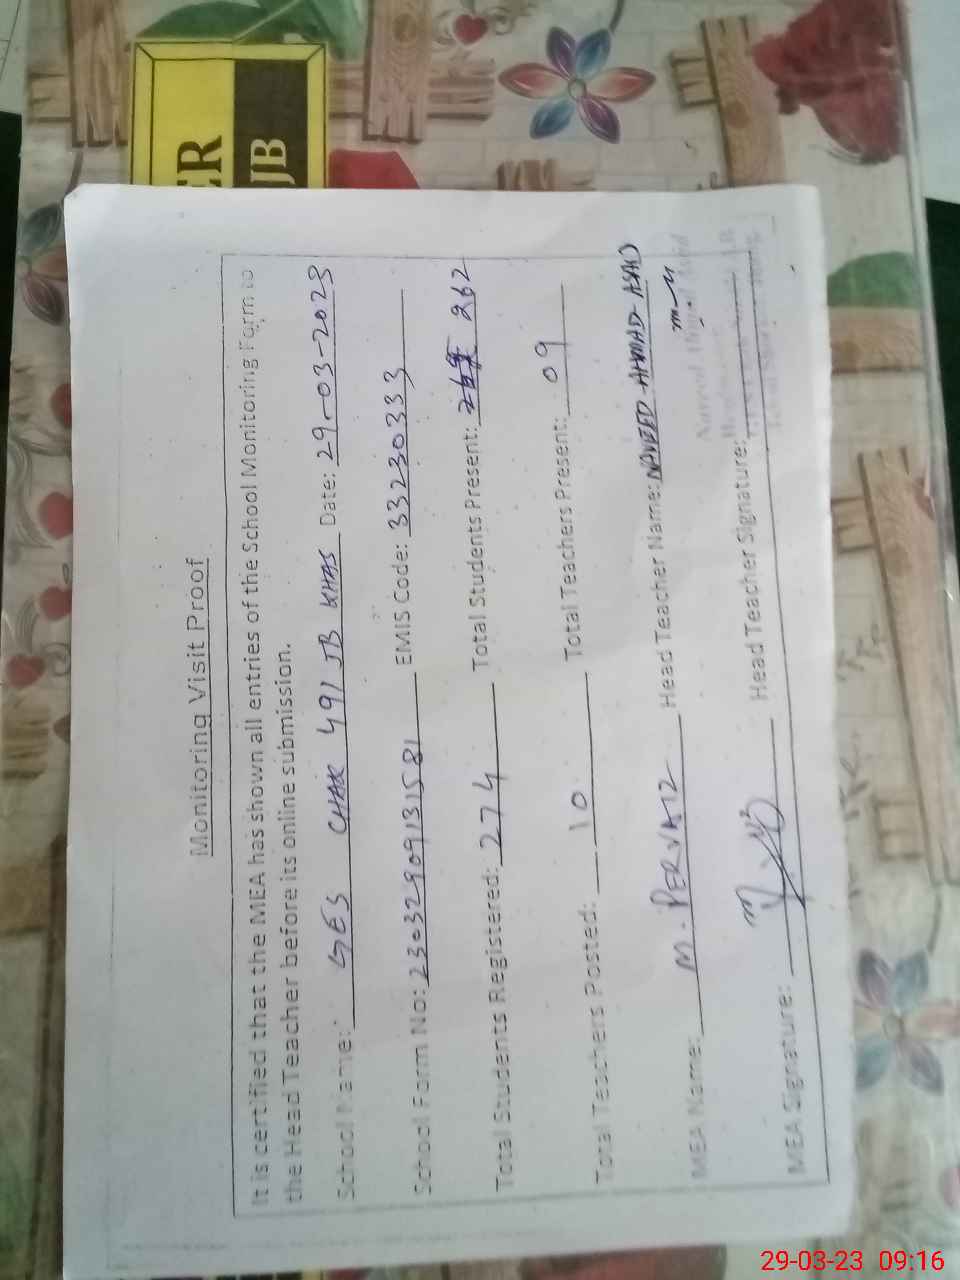 ER
JB
Monitoring Visit Proof
It is certified that the MEA has shown all entries of the School Monitoring Form to
the Head Teacher before its online submission.
School Name: GES CHAK 491 JB KHAS Date: 29-03-2023
School Form No: 23032909131581 EMIS Code: 33230333
Total Students Registered: 274 Total Students Present: 262
Total Teachers Posted: 10 Total Teachers Present: 09
MEA Name: M. PERVAIZ Head Teacher Name: NAVEED AHMAD ASAD
MEA Signature: Head Teacher Signature:
29-03-23 09:16